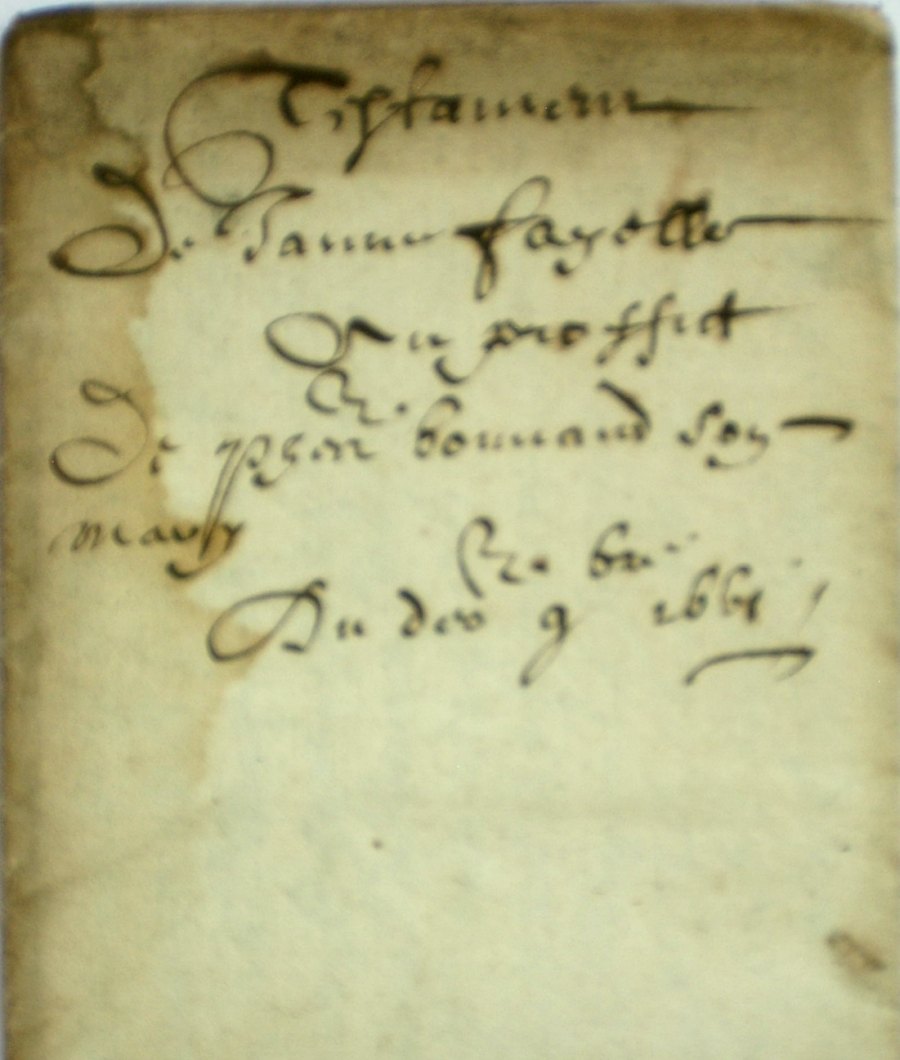 Testament
De Janne fayolle
Au proffict
De pher bonnand son
mary
Du der 9bre 1661